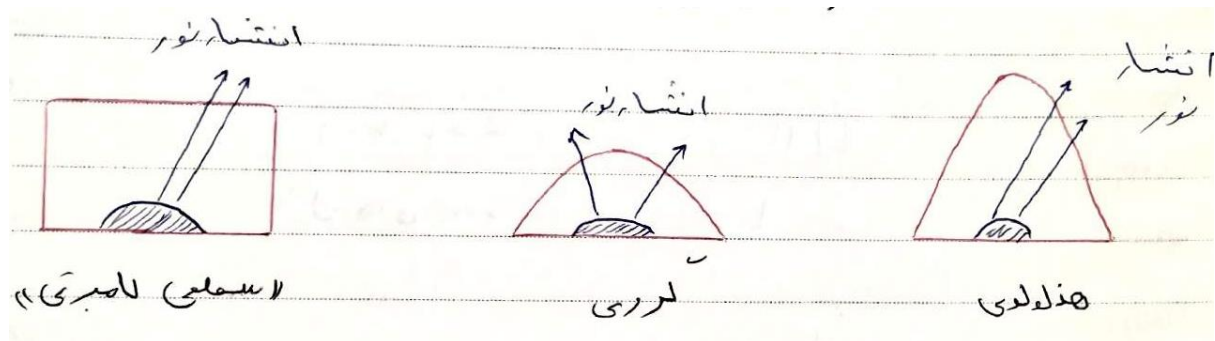 انتشار نور
انتشار نور
انتشار
نور
«سطحی لامبرتی»
کروی
هذلولوی